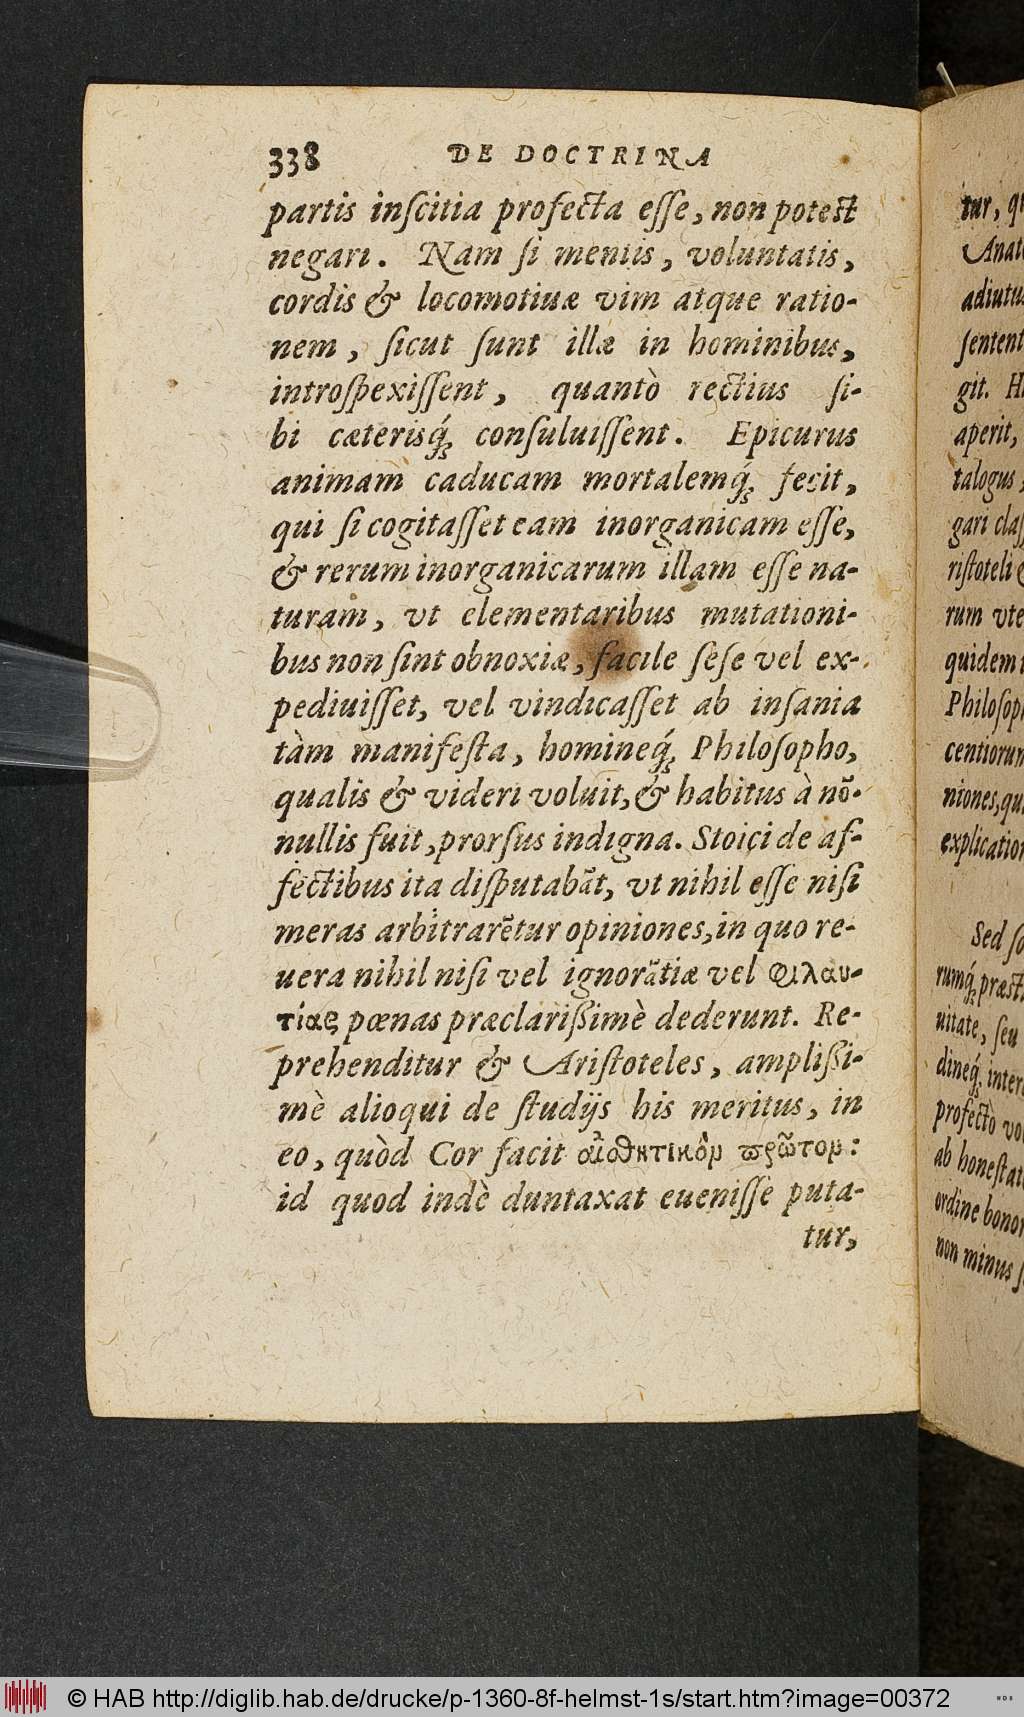 338 DE DOCTRINA
partis inſcitia profecta eſſe, non poteſt
negari. Nam ſi mentis, voluntatis,
cordis & locomotiuæ vim atque ratio-
nem, ſicut ſunt illæ in hominibus,
introſpexiſſent, quantò rectius ſi-
bi cæterisq́; conſuluiſſent. Epicurus
animam caducam mortalemq́; fecit,
qui ſi cogitaſſet eam inorganicam eſſe,
& rerum inorganicarum illam eſſe na-
turam, vt elementaribus mutationi-
bus non ſint obnoxiæ, facile ſeſe vel ex-
pediuiſſet, vel vindicaſſet ab inſania
tàm manifeſta, homineq́; Philoſopho,
qualis & videri voluit, & habitus à nõ-
nullis fuit, prorſus indigna. Stoici de af-
fectibus ita diſputabãt, vt nihil eſſe niſi
meras arbitrarẽtur opiniones, in quo re-
uera nihil niſi vel ignorãtiæ vel φιλαυ-
τίας pœnas præclariſſimè dederunt. Re-
prehenditur & Ariſtoteles, ampliſſi-
mè alioqui de ſtudijs his meritus, in
eo, quòd Cor facit αἰσθητικὸν πρῶτον:
id quod indè duntaxat eueniſſe puta-
tur,
tur, q
Anat
adiutu
ſentent
git. H
aperit,
talogus,
gari claſ
riſtoteli
rum vte
quidem
Philoſop
centiorum
niones, qu
explication
Sed ſ
rumq́; præſt
uitate, ſeu
dineq́; inter
profectò vo
ab honeſtat
ordine bonor
non minus ſ
© HAB http://diglib.hab.de/drucke/p-1360-8f-helmst-1s/start.htm?image=00372